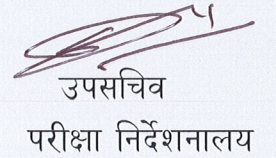 उपसचिव
परीक्षा निर्देशनालय